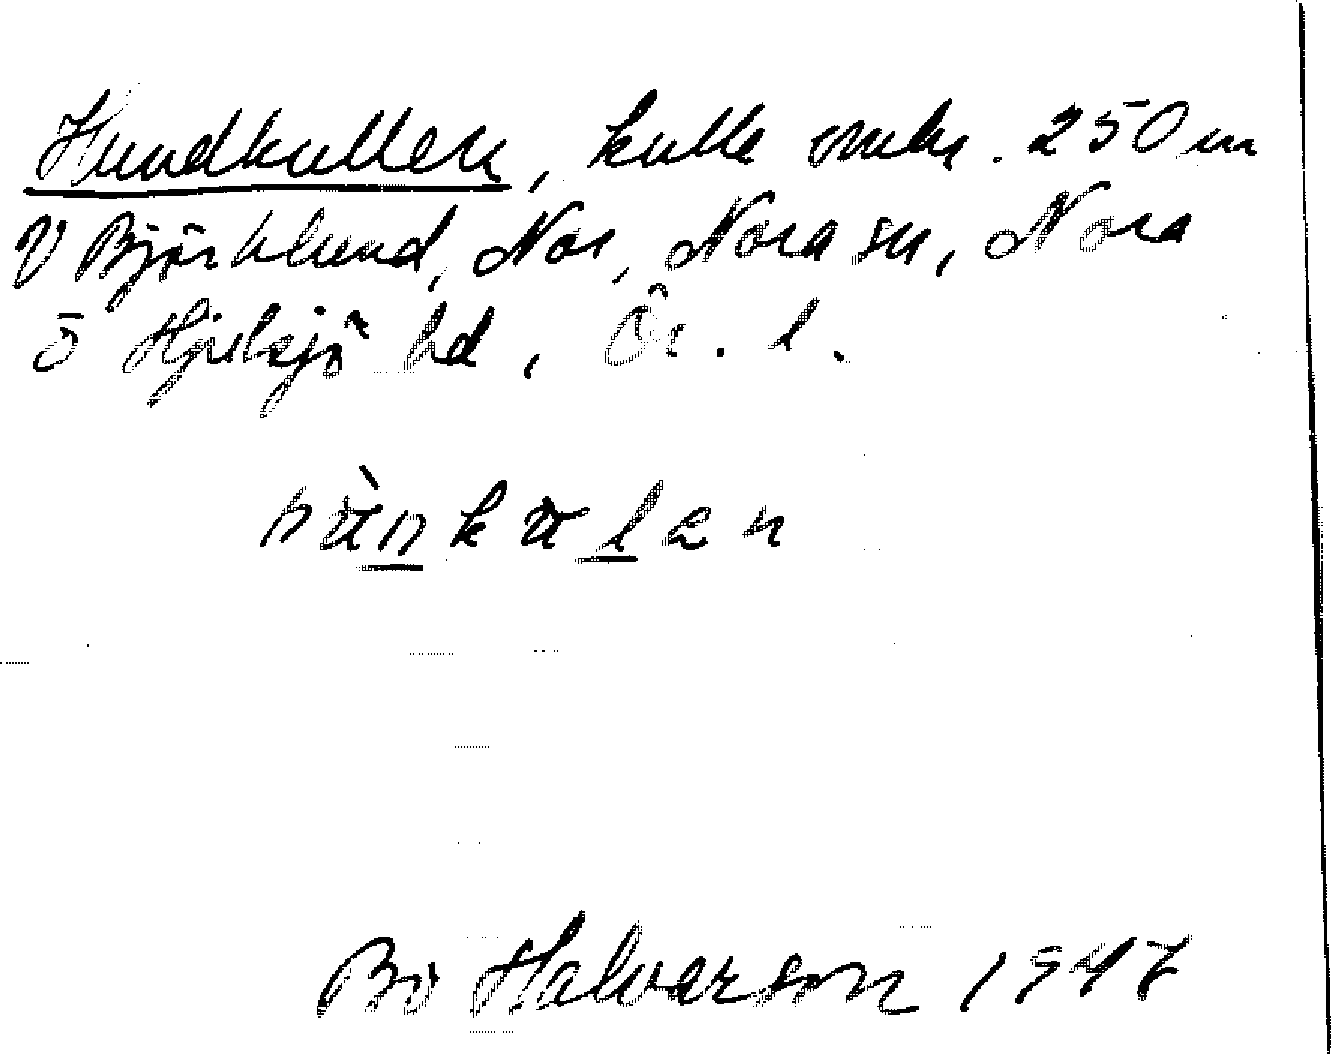 Hundkullen, kulle omkr. 250 m
V Björklund, Nor, Nora sn, Nora
o Hjulsjö hd, Ör. l.
Bo Halvarson 1947